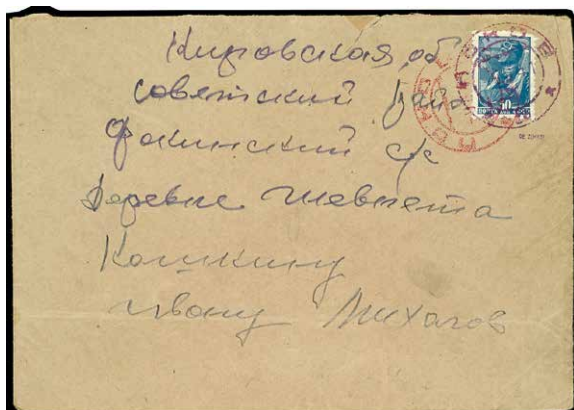 Кировская об
советский райо
Фокинский с/с
Деревне
Кошкину
ивану Михалов